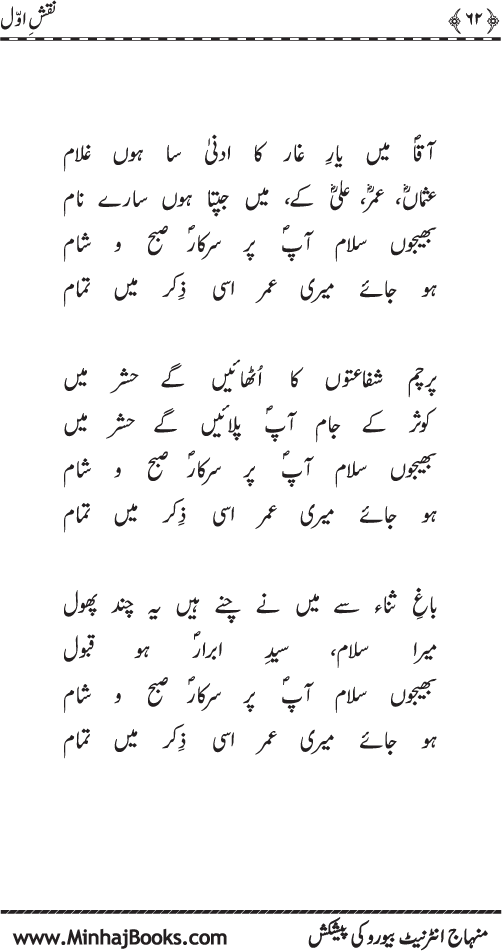 ﴿۶۲﴾ نقشِ اوّل
آقاؐ میں یارِ غار کا ادنیٰ سا ہوں غلام
عثماںؓ، عمرؓ، علیؓ کے، میں جپتا ہوں سارے نام
بھیجوں سلام آپؐ پر سرکارؐ صبح و شام
ہو جائے میری عمر اسی ذِکر میں تمام
پرچم شفاعتوں کا اُٹھائیں گے حشر میں
کوثر کے جام آپؐ پلائیں گے حشر میں
بھیجوں سلام آپؐ پر سرکارؐ صبح و شام
ہو جائے میری عمر اسی ذِکر میں تمام
باغِ ثناء سے میں نے چنے ہیں یہ چند پھول
میرا سلام، سیدِ ابرارؐ ہو قبول
بھیجوں سلام آپؐ پر سرکارؐ صبح و شام
ہو جائے میری عمر اسی ذِکر میں تمام
منہاج انٹرنیٹ بیورو کی پیشکش www.MinhajBooks.com